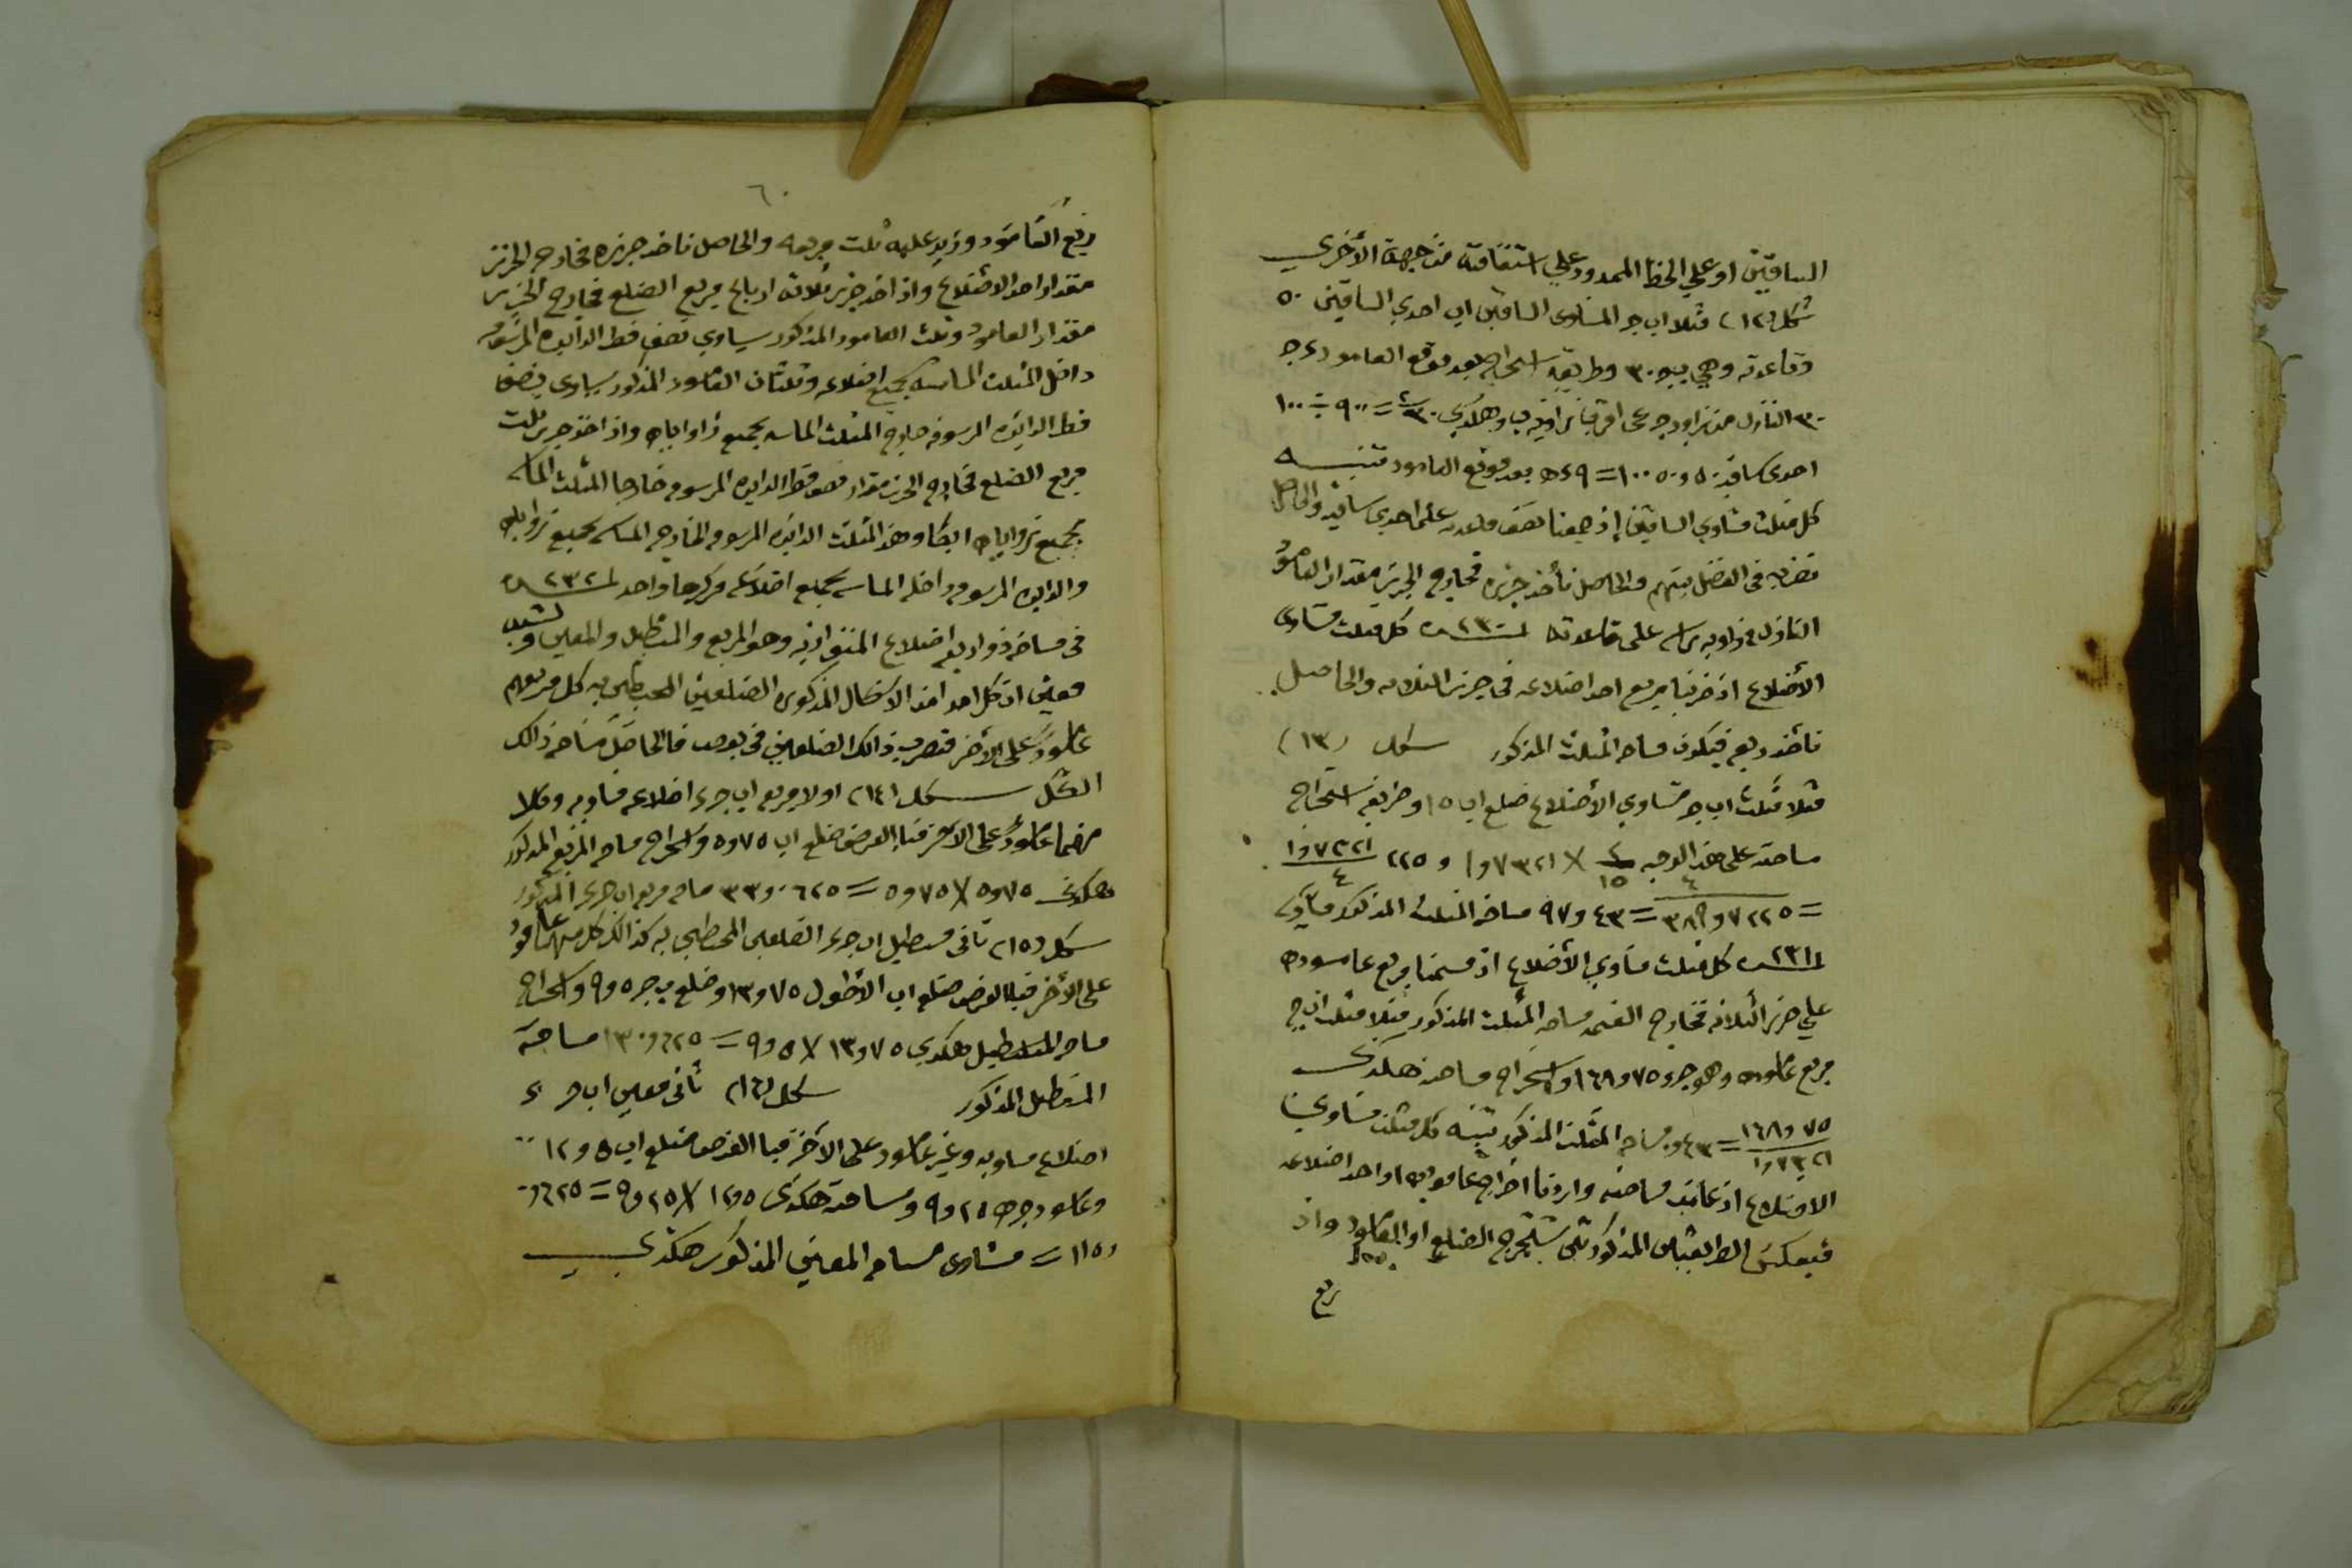 الساقين او على الخط الممدود على استقامته من جهة الأخرى
شكل (١٢) مثلا اب جـ المساوى الساقين اب احدي الساقين ٥٠
وقاعدته وهي بجـ ٣٠ وطريقة استخراج بعد موقع العامود
٣٠ النازل من
احدى ساقيه ٥٠ و ٥٠ ١٠٠ = ٩ بعد موقع العامود تنبيه
كل مثلث مساوي الساقين إذ جمعنا نصف قاعدته على احدى ساقيه والحاصل
نضربه فى الفضل بينهم والحاصل نأخذ جزره فخارج الجزر مقدار العامود
النازل من زاوية راسه على قاعدته ٢٣٠ كل مثلث مساوى
الأضلاع اذ ضربنا مربع احد اضلاعه فى جزر الثلاثه والحاصل
نأخذ ربعه فيكون مساحه المثلث المذكور شكل (١٣)
مثلا مثلث اب جـ مساوي الأضلاع ضلع اب ١٥ وطريقه استخراج
مساحته على هذا الوجه ١٥ X ٧٣٢١و١ و ٢٢٥ ٧٣٢١و١
٤
= ٤٣و٩٧ مساحه المثلث المذكور
٢٣١ كل مثلث مساوي الأضلاع اذ قسمنا مربع عاموده
على جزر الثلاثه فخارج القسمه مساحه المثلث المذكور مثلا مثلث اب جـ
مربع عاموده وهو ٧٥و١٦٨ واستخراج مساحته هكذى
٧٥و١٦٨
٧٣٢١و١ = مساحه المثلث المذكور تنبيه كل مثلث مساوي
الاضلاع اذ علمت مساحته واردنا اخراج عاموده او احد اضلاعه
فبعكس الطريقتين المذكورتين نستخرج الضلع او العامود واذ
ربع
٦٠
ربع العامود وزيد عليه ثلث مربعه والحاصل ناخذ جزره فخارج الجزر
مقدار احد الاضلاع واذ اخذ جزر ثلاثه ارباع مربع الضلع فخارج الجزر
مقدار العامود وثلث العامود المذكور يساوي نصف قطر الدايره المرسومه
داخل المثلث الماسه بجميع اضلاعه وثلثان العامود المذكور يساوى نصف
قطر الدايره المرسومه خارج المثلث الماسه بجميع زواياه واذ اخذ جزر ثلث
مربع الضلع فخارج الجزر مقدار نصف قطر الدايره المرسومه خارجا المثلث الماسه
بجميع زواياه ايضا وهذا المثلث الدايره المرسومه الخارجه الماسه بجميع زواياه
والدايره المرسومه داخله الماسه بجميع اضلاعه مركزها واحد ٢٣٢
فى مساحة ذو اربعه اضلاع المتوازيه وهو المربع والمستطيل والمعين وشبه
معين ان كل احد من الاشكال المذكوره الضلعين المحيطين به كل مربعهم
عامود على الأخر فنضرب ذالك الضلعين فى بعضه فالحاصل مساحه ذالك
الشكل شكل (١٤) اولا مربع اب جـ ء اضلاعه مساويه وكلا
منهما عامود على الاخر فبالفرض ضلع اب ٧٥و٥ واستخراج مساحه المربع المذكور
هكذى ٧٥و٥ X ٧٥و٥ = ٠٦٢٥و٣٣ مساحه مربع اب جـ ء المذكور
شكل (١٥) ثانى مستطيل اب جـ ء الضلعين المحيطين به كذالك كل منهما عامود
على الأخر فبالفرض ضلع اب الأطول ٧٥و١٣ وضلع بجـ ٥و٩ واستخراج
مساحه المستطيل هكذى ٧٥و١٣ X ٥و٩ = ٦٢٥و١٣٠ مساحة
المستطيل المذكور شكل (١٦) ثانى معين اب جـ ء
اضلاع مساويه وغير عامود على الاخر فبالفرض ضلع اب ٥و١٢
وعامود ٢٥و٩ ومساحته هكذى ٥و١٢ X ٢٥و٩ = ٦٢٥و
١١٥ = مساوى مساحه المعين المذكور هكذى